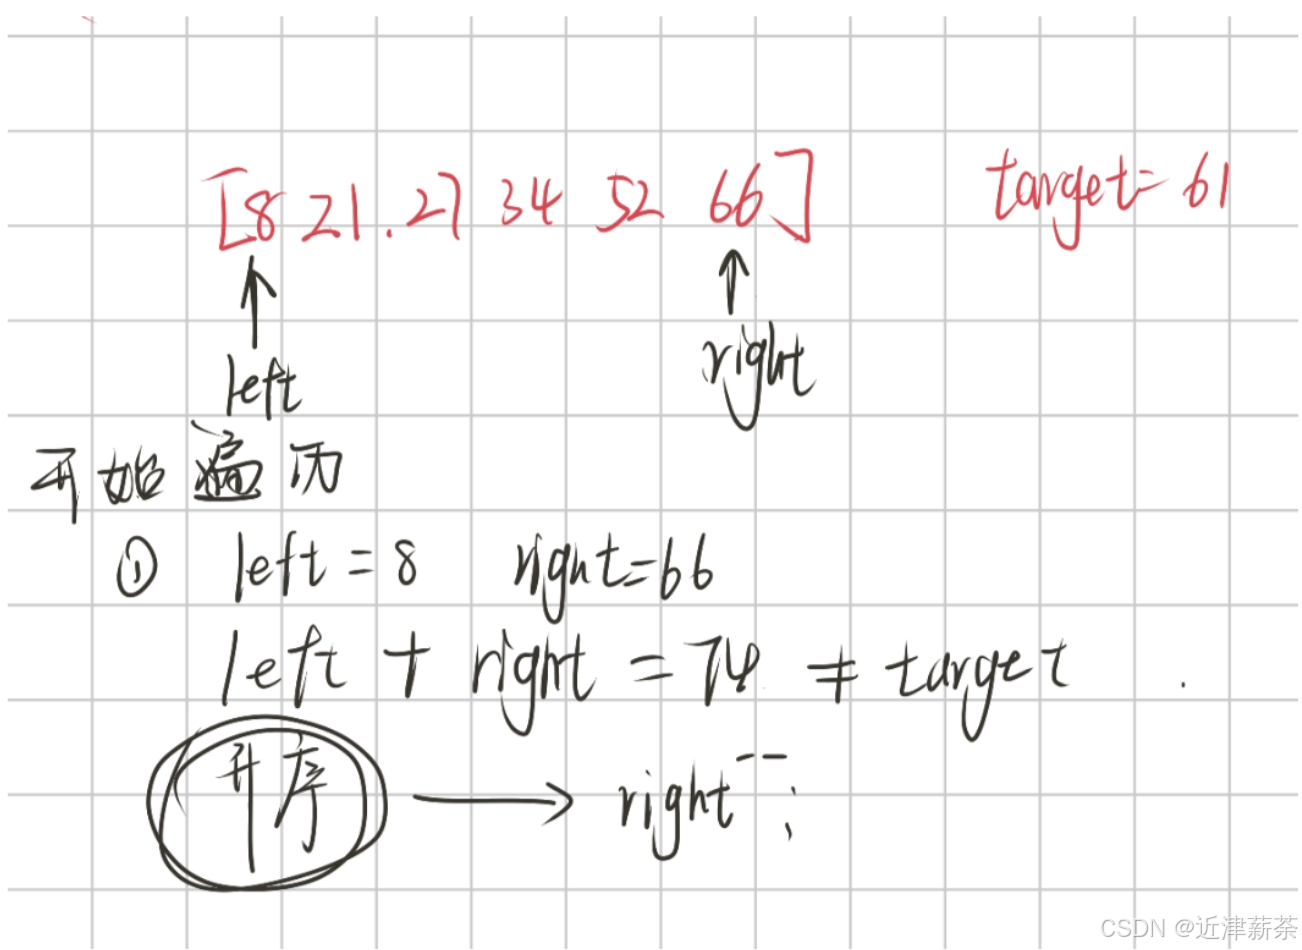 [8 21. 27 34 52 66] target=61
left right
开始遍历
① left=8 right=66
left + right = 74 ≠ target .
升序 → right--;
CSDN @近津薪荼